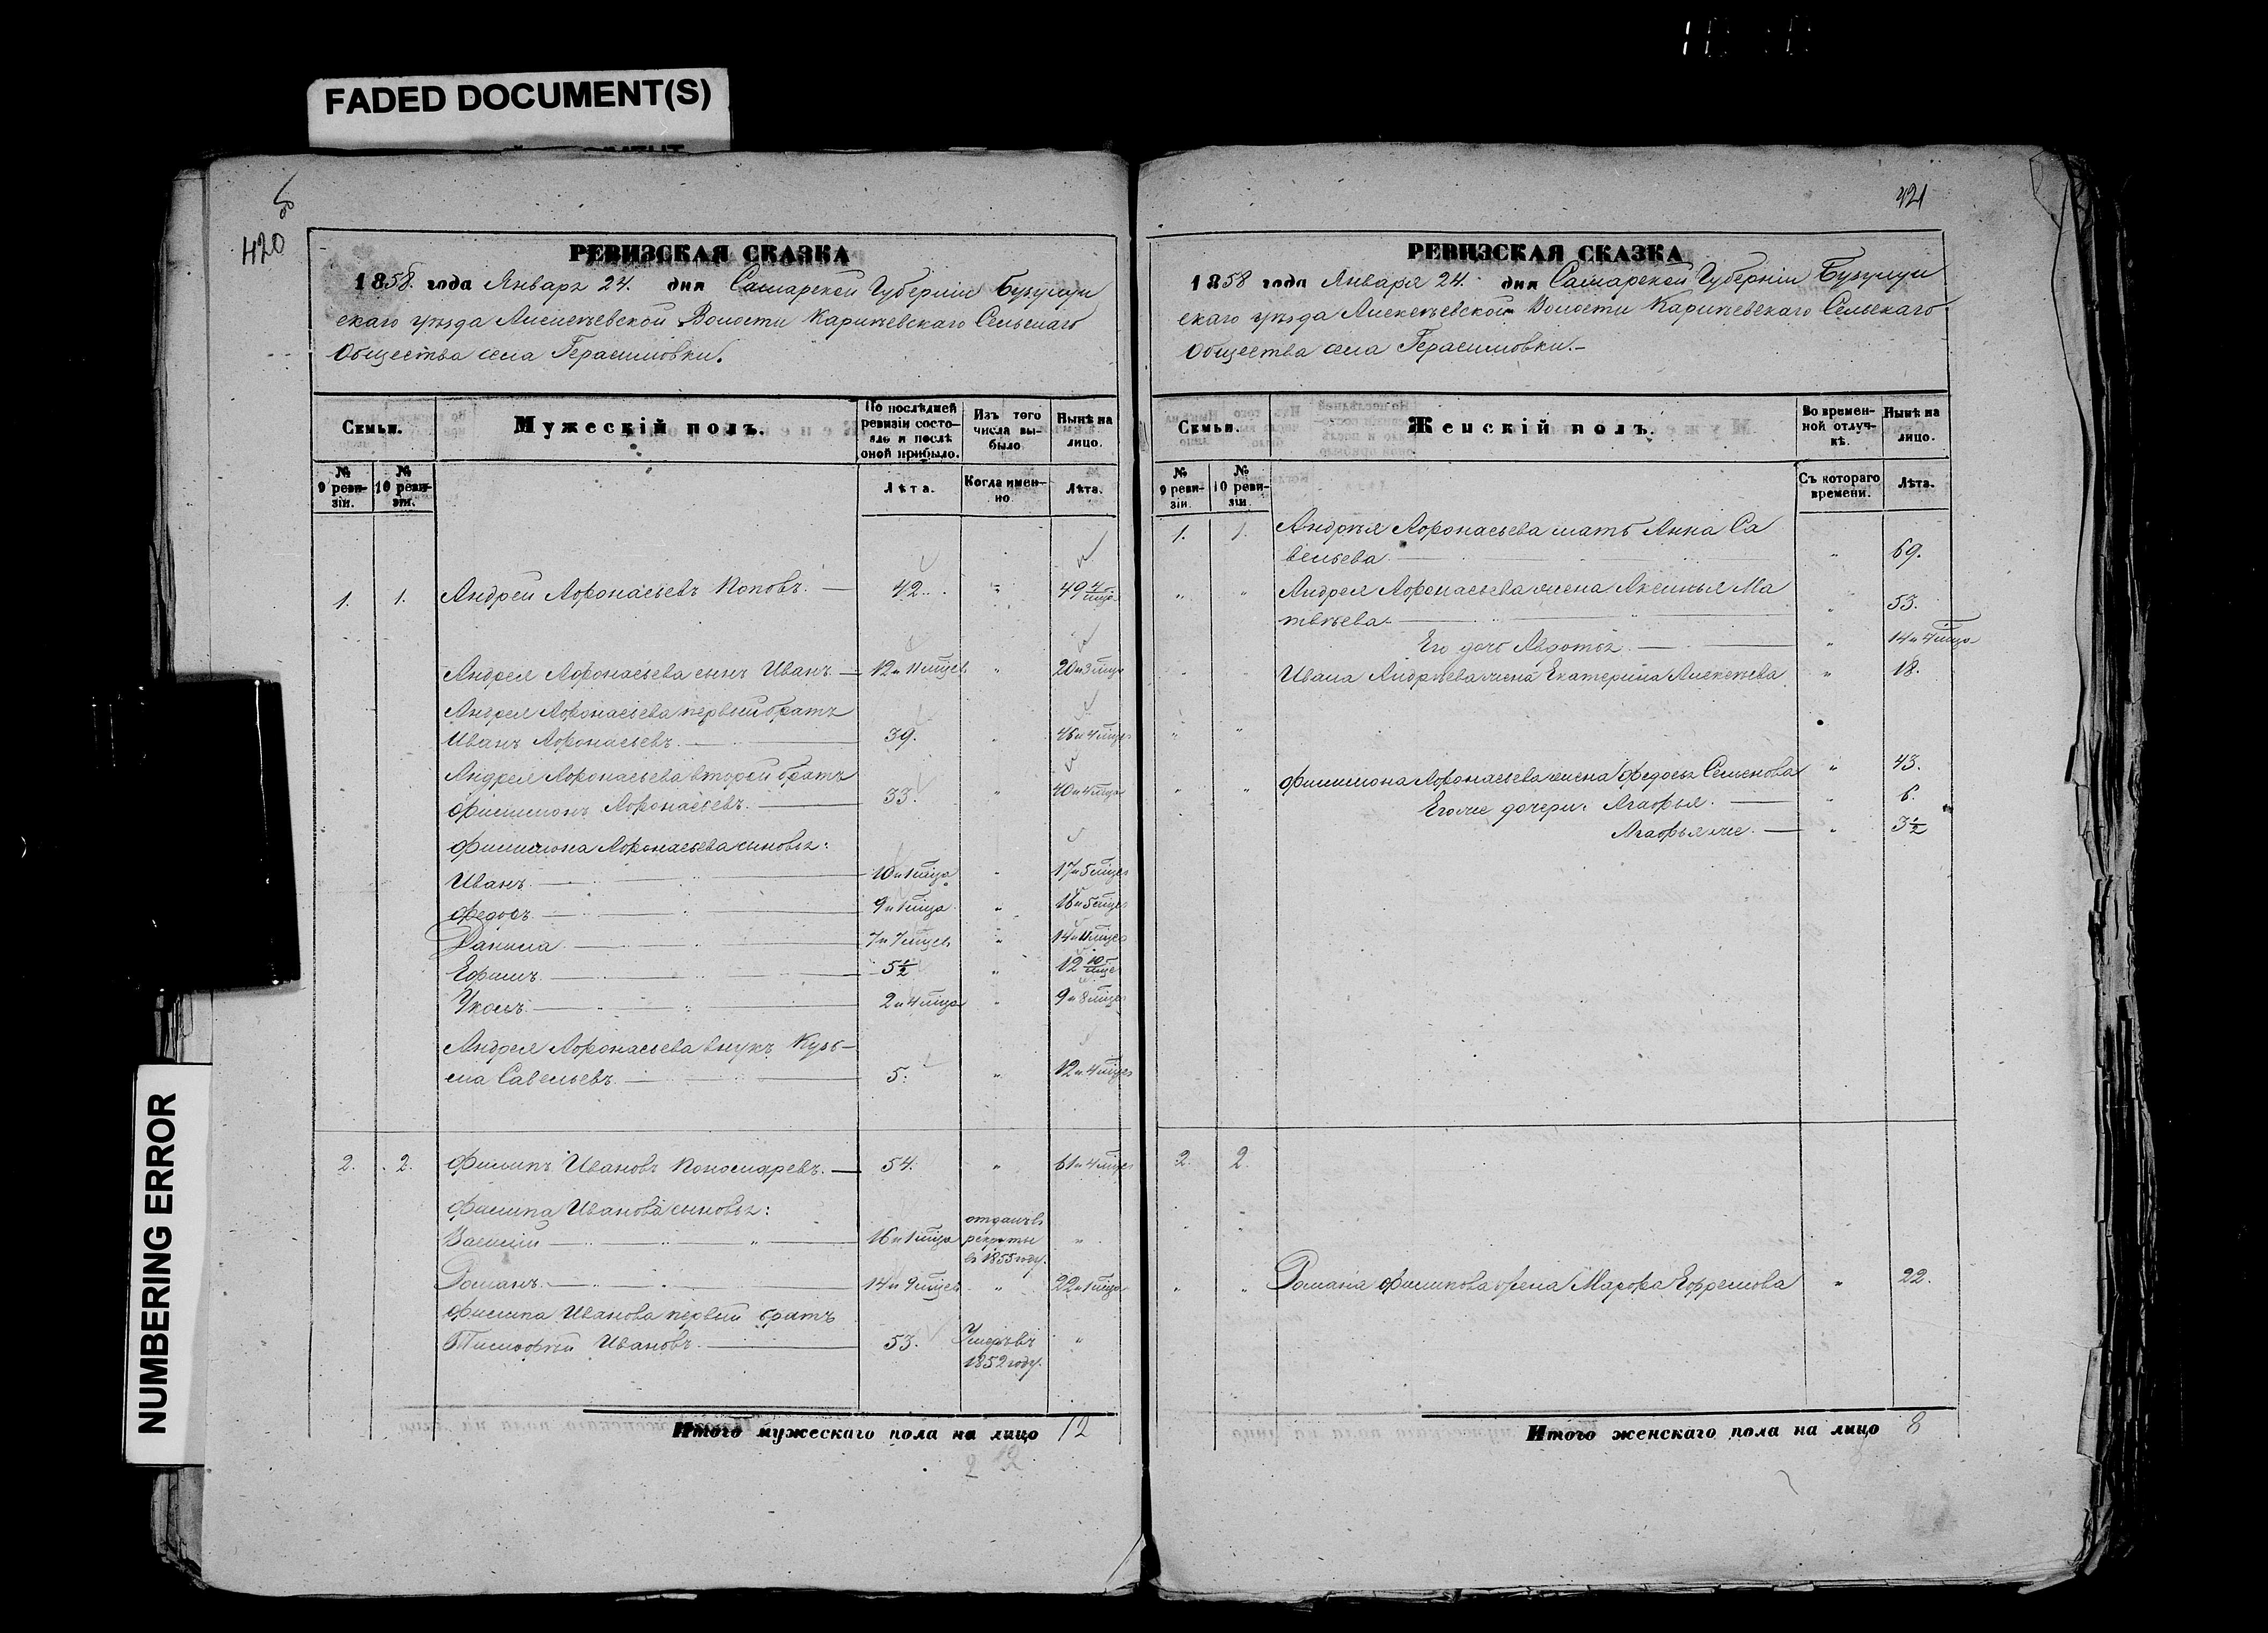 FADED DOCUMENT(S)
NUMBERING ERROR
420
РЕВИЗСКАЯ СКАЗКА
1858. года Января 24. дня Самарской Губернии Бузулук
скаго уѣзда Алексѣевской Волости Каричевскаго Сельскаго
Общества села Герасимовки.
Семьи.
Мужескій полъ.
По послѣдней ревизіи состояло и послѣ оной прибыло.
Изъ того числа выбыло
Нынѣ на лицо.
№ 9 ревизіи.
№ 10 ревизіи.
Лѣта.
Когда именно
Лѣта.
1. 1. Андрей Афонасьевъ Поповъ. 42. " 49 4/мѣс.
Андрея Афонасьева сынъ Иванъ. 12 и 11 мѣсец. " 20 и 3 мѣца
Андрея Афонасьева первый братъ
Иванъ Афонасьевъ. 39. " 46 и 4 мѣцы
Андрея Афонасьева второй братъ
Филимонъ Афонасьевъ. 33. " 40 и 4 мѣца
Филимона Афонасьева сыновья:
Иванъ. 10 и 1 мѣца " 17 и 5 мѣцы
Федосъ. 9 и 1 мѣца " 16 и 5 мѣцы
Данила 7 и 7 мѣцев " 14 и 11 мѣцев
Ефимъ. 5½ " 12 10/мѣце
Уколъ. 2 и 4 мѣца " 9 и 8 мѣцы
Андрея Афонасьева внукъ Кузь-
ма Савельевъ. 5. " 12 и 4 мѣцы
2. 2. Филипъ Ивановъ Пономаревъ. 54. " 61 и 4 мѣцы
Филипа Иванова сыновья:
Василій 16 и 1 мѣца отданъ въ рекруты въ 1855 году. "
Романъ. 14 и 9 мѣцев " 22 и 1 мѣца
Филипа Иванова первый братъ
Тимофѣй Ивановъ. 53. Умеръ въ 1852 году. "
Итого мужескаго пола на лицо 12
421
РЕВИЗСКАЯ СКАЗКА
1858 года Января 24. дня Самарской Губерніи Бузулук
скаго уѣзда Алексѣевской Волости Каричевскаго Сельскаго
Общества села Герасимовки.
Семьи.
Женскій полъ.
Во временной отлучкѣ.
Нынѣ на лицо.
№ 9 ревизіи.
№ 10 ревизіи
Съ котораго времени.
Лѣта.
1. 1. Андрѣя Афонасьева мать Анна Са
вельева. " 69.
" " Андрея Афонасьева жена Аксинья Ма
твѣева. " 53.
Его дочь Авдотья. " 14 и 4 мѣца
Ивана Андрѣева жена Екатерина Алексѣева " 18.
Филимона Афонасьева жена Федосья Семенова " 43.
Его же дочери: Агафья. " 6.
Агафья же. " 3½
2. 2.
" " Романа Филипова жена Марфа Ефремова " 22.
Итого женскаго пола на лицо 8